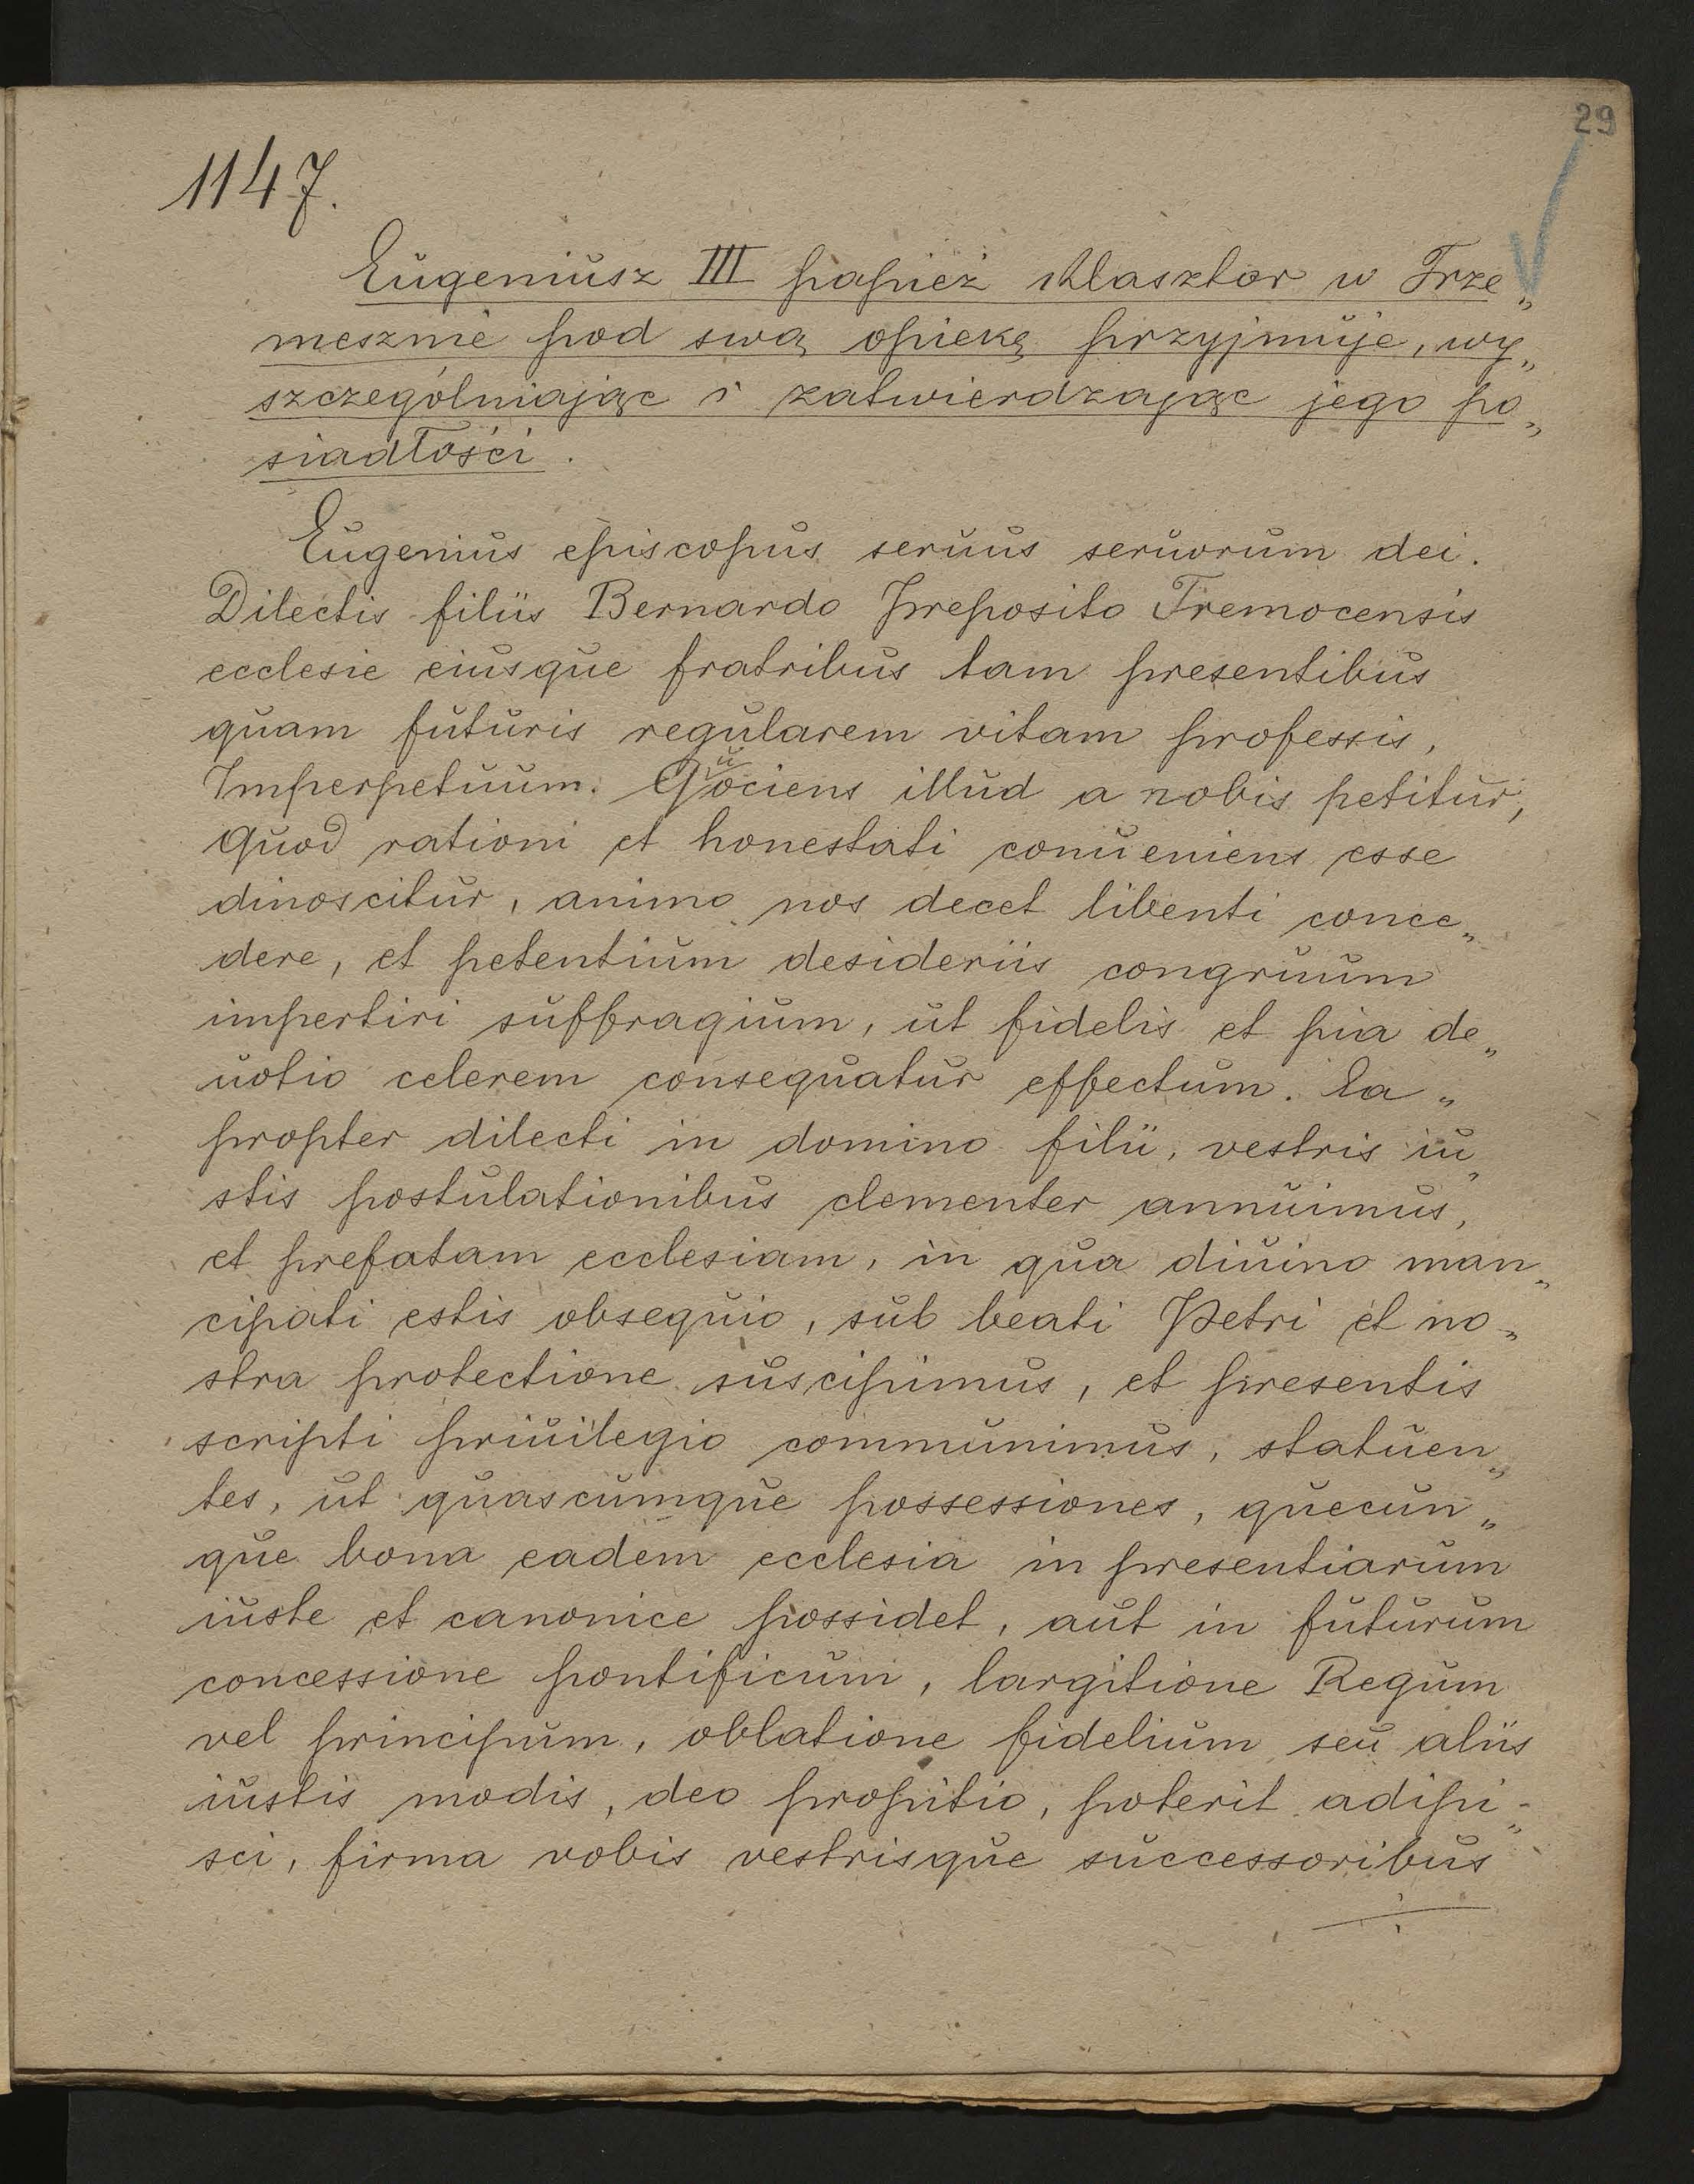 29
1147.
Eugeniusz III papież klasztor w Trze„
mesznie pod swą opiekę przyjmuje, wy„
szczególniając i zatwierdzając jego po„
siadłości.
Eugenius episcopus seruus seruorum dei.
Dilectis filiis Bernardo Preposito Tremocensis
ecclesie eiusque fratribus tam presentibus
quam futuris regularem vitam professis,
Imperpetuum. Quociens illud a nobis petitur,
Quod rationi et honestati conueniens esse
dinoscitur, animo nos decet libenti conce„
dere, et petentium desideriis congruum
impertiri suffragium, ut fidelis et pia de„
uotio celerem consequatur effectum. Ea„
propter dilecti in domino filii, vestris iu„
stis postulationibus clementer annuimus,
et prefatam ecclesiam, in qua diuino man„
cipati estis obsequio, sub beati Petri et no„
stra protectione suscipimus, et presentis
scripti priuilegio communimus, statuen„
tes, ut quascumque possessiones, quecun„
que bona eadem ecclesia in presentiarum
iuste et canonice possidet, aut in futurum
concessione pontificum, largitione Regum
vel principum, oblatione fidelium seu aliis
iustis modis, deo propitio, poterit adipi„
sci, firma vobis vestrisque successoribus